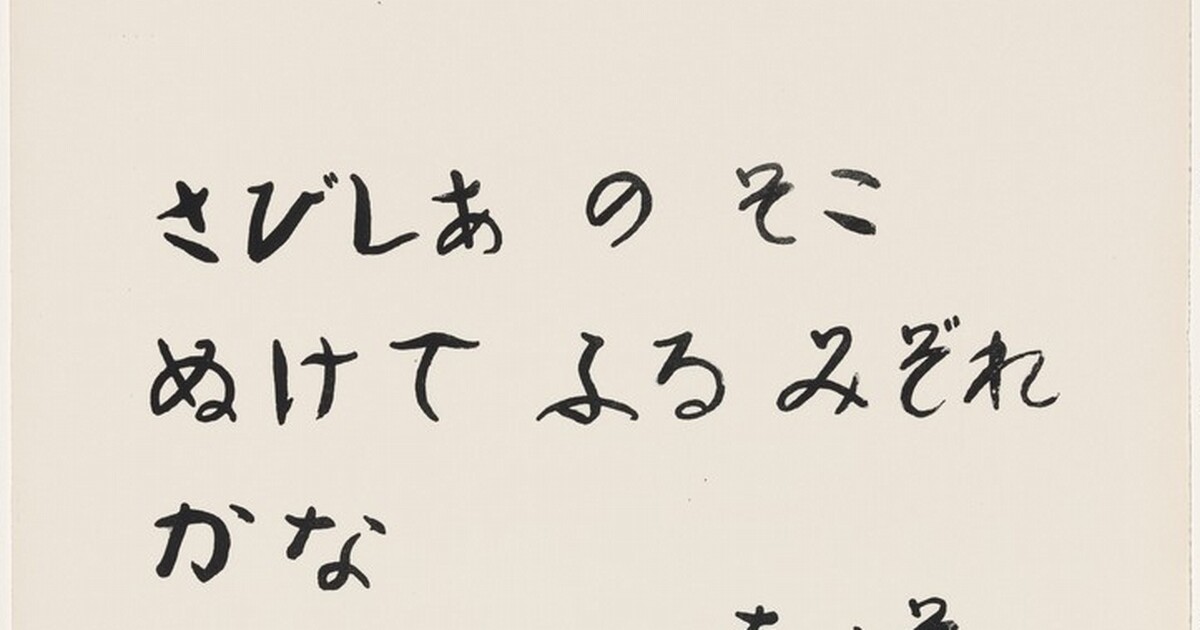 さびしあ の そこ
ぬけて ふる みぞれ
かな